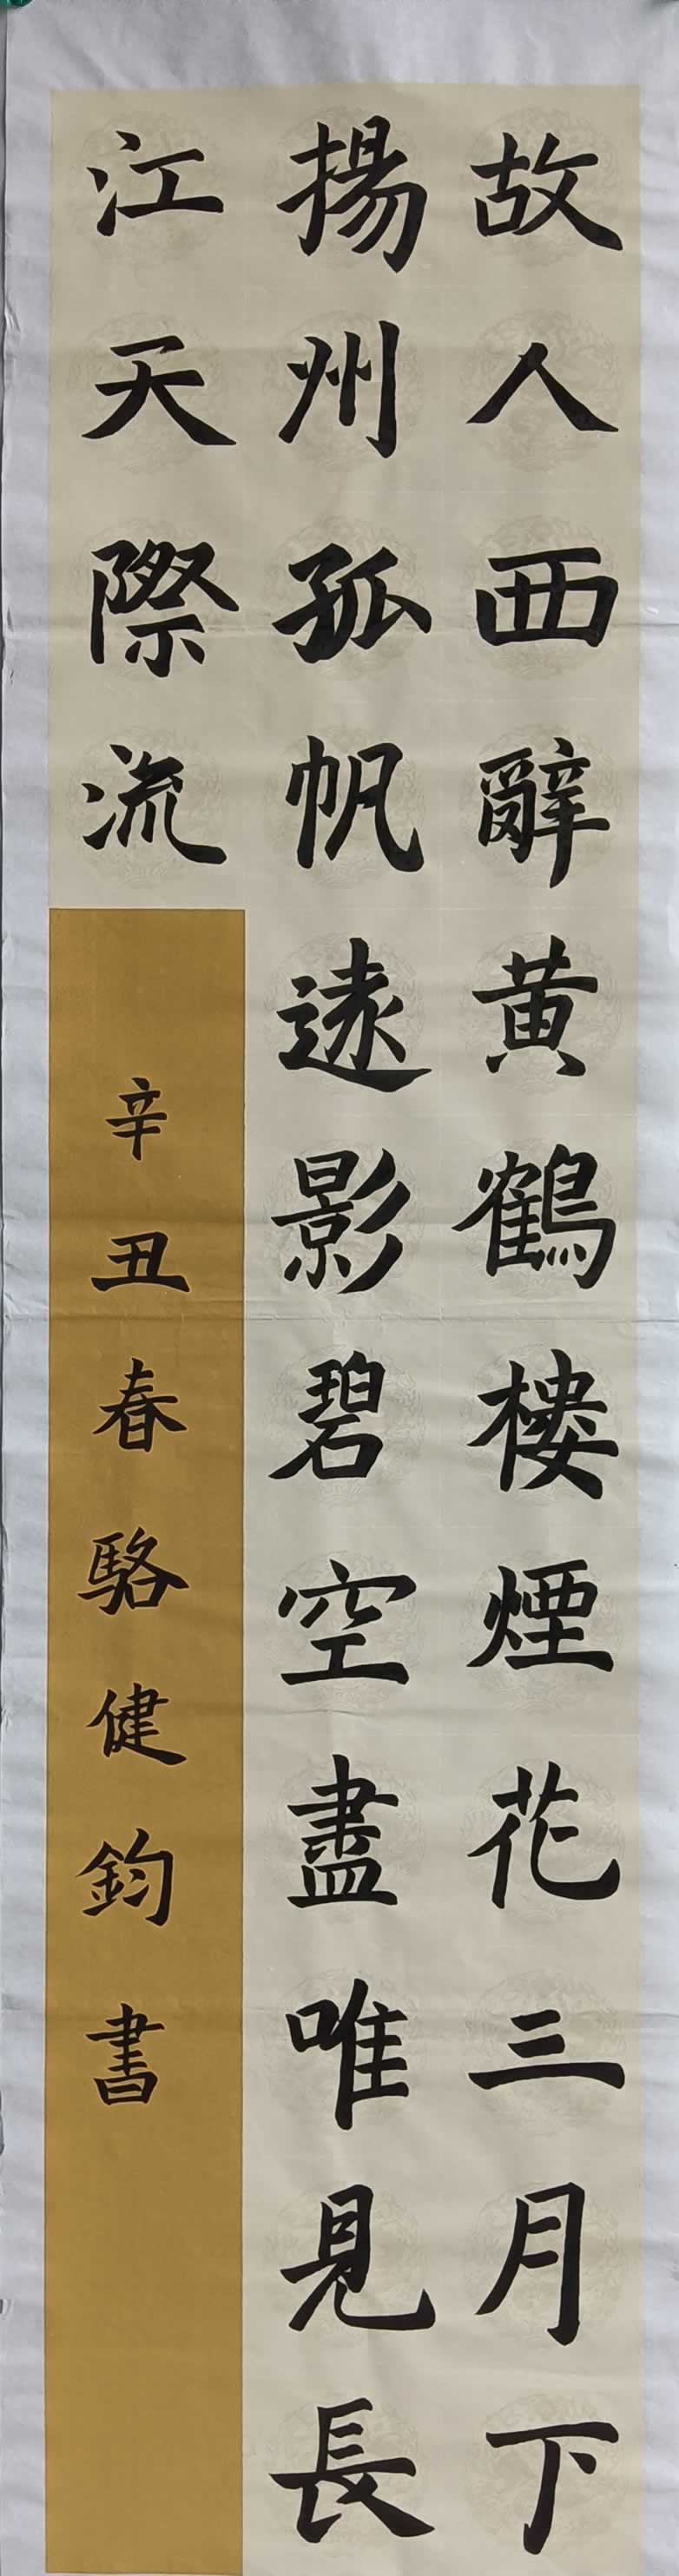 故人西辭黃鶴樓煙花三月下
揚州孤帆遠影碧空盡唯見長
江天際流
辛丑春駱健鈞書